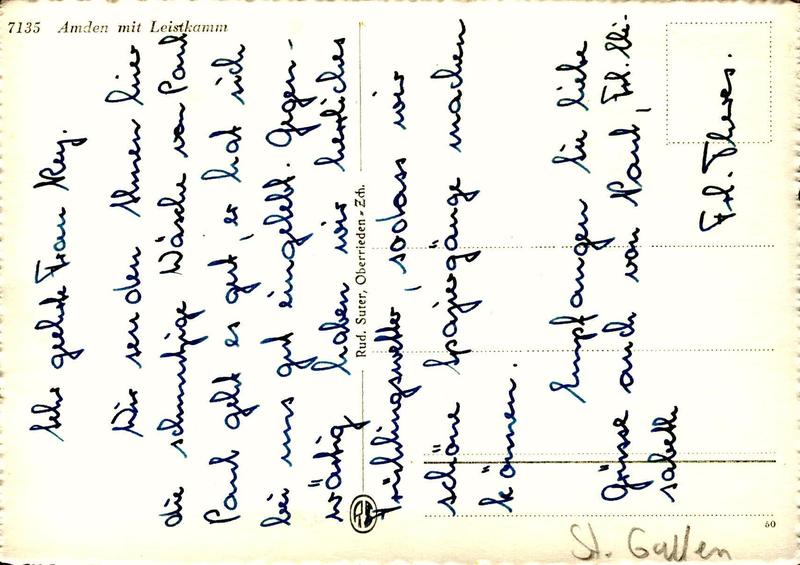 7135 Amden mit Leistkamm
Sehr geehrte Frau Rey.
Wir senden Ihnen hier
die schmutzige Wäsche von Paul
Paul geht es gut, er hat sich
bei uns gut eingelebt. Gegen-
wärtig haben wir herrliches
Frühlingswetter, sodass wir
schöne Spaziergänge machen
können.
Empfangen Sie liebe
Grüsse auch von Paul, Frl. Eli-
sabeth
Frl. Theres.
Rud. Suter, Oberrieden - Zch.
50
St. Gallen